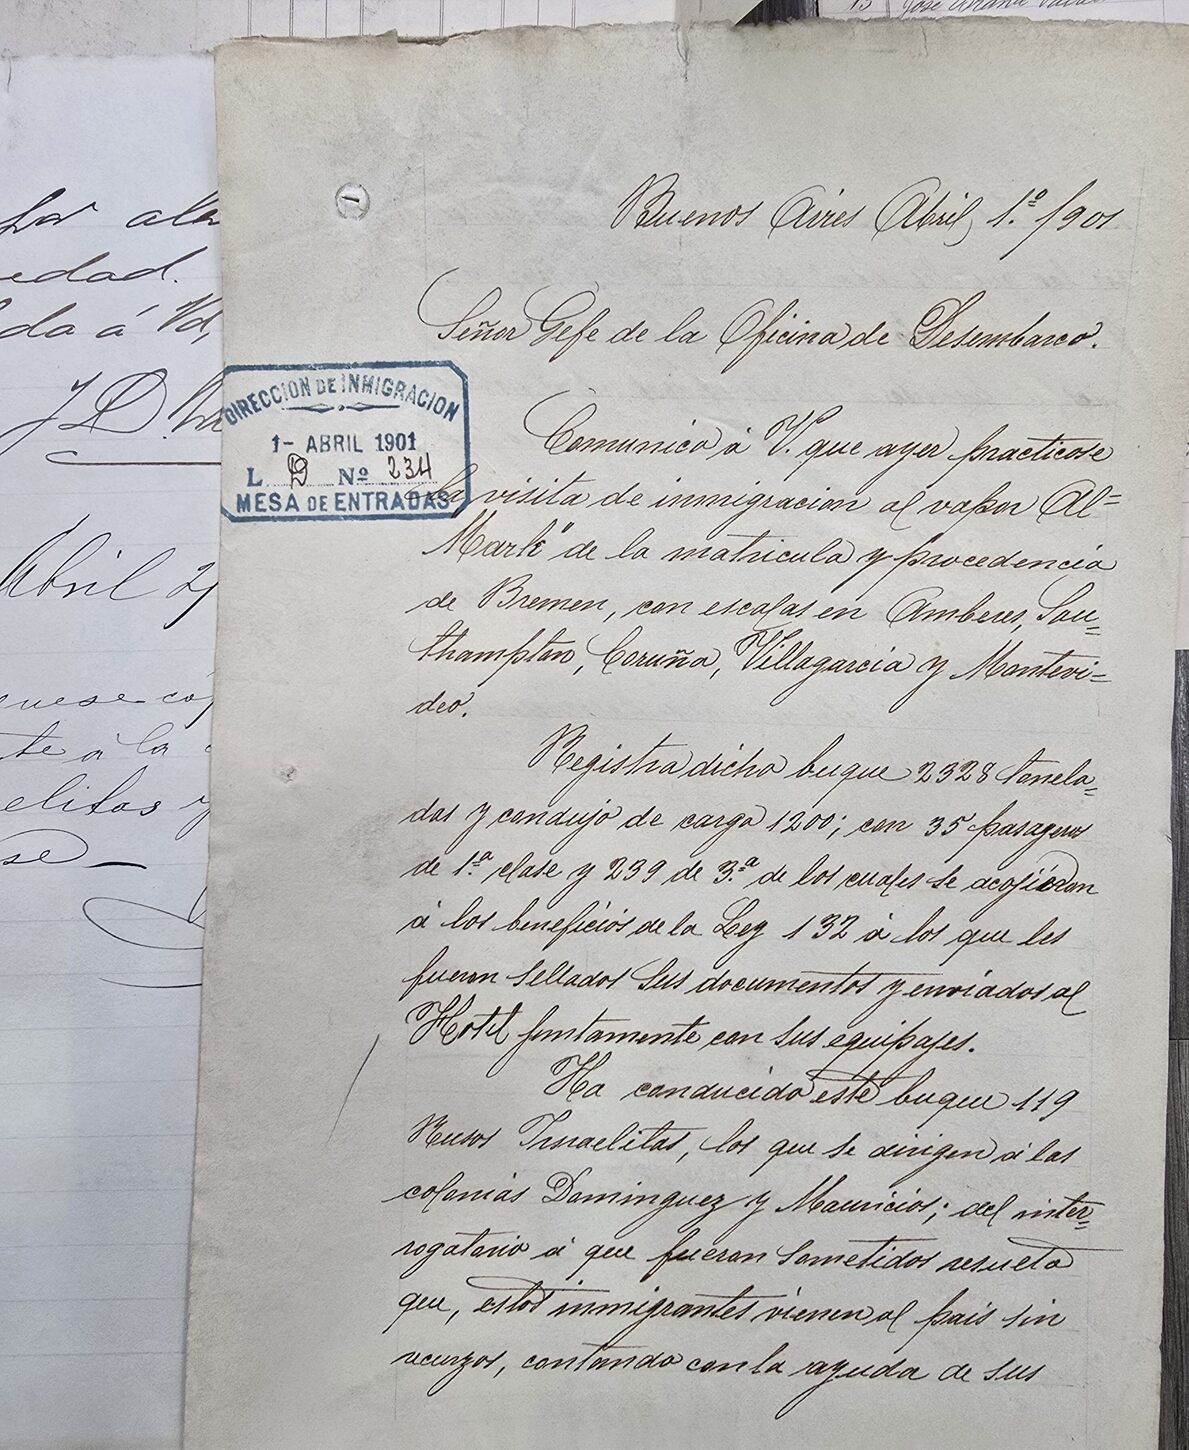 13 José
por alta
edad.
da á Vd,
J D.
Abril 2
quese cop
te á la
elitas y
se
1
Buenos Aires Abril, 1.º /901
Señor Gefe de la Oficina de Desembarco.
DIRECCION DE INMIGRACION
1- ABRIL 1901
L. 19 Nº 234
MESA DE ENTRADAS
Comunico á V. que ayer practicose
la visita de inmigracion al vapor Al=
Mark" de la matricula y procedencia
de Bremen, con escalas en Amberes, Sou=
thampton, Coruña, Villagarcia y Montevi=
deo.
Registra dicho buque 2328 tonela=
das y condujo de carga 1200; con 35 pasageros
de 1.ª clase y 239 de 3.ª de los cuales se acojieron
á los beneficios de la Ley 132 á los que les
fueron sellados sus documentos y enviados al
Hotel juntamente con sus equipajes.
Ha conducido este buque 119
Rusos Israelitas, los que se dirigen á las
colonias Dominguez y Mauricios; del inter=
rogatorio á que fueron sometidos resulta
que, estos inmigrantes vienen al pais sin
recurzos, contando con la ayuda de sus